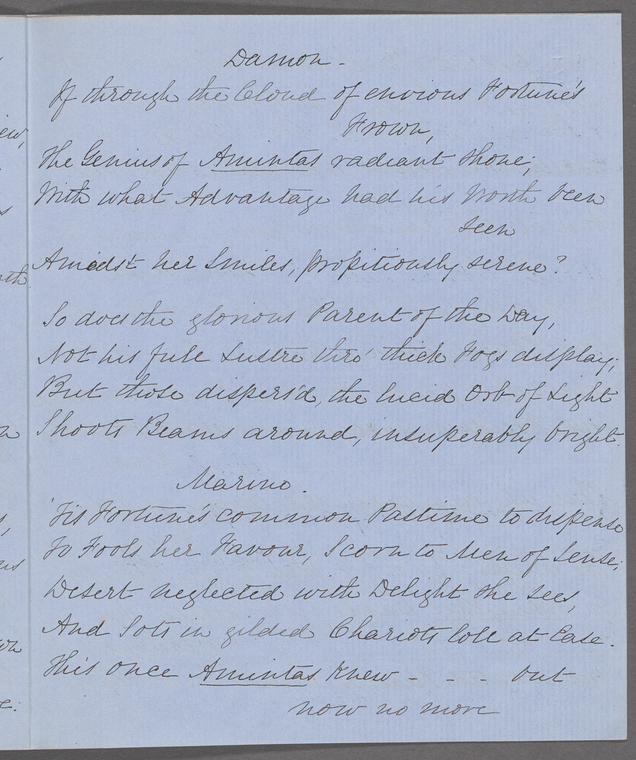 Damon -
If through the Cloud of envious Fortune's
Frown,
The Genius of Amintas radiant shone;
With what Advantage had his Worth been
seen
Amidst her Smiles, propitiously serene?
So does the glorious Parent of the Day,
Not his full Lustre thro' thick Fogs display;
But those dispers'd, the lucid Orb of Light
Shoots Beams around, insuperably bright.
Marino.
'Tis Fortune's common Pastime to dispense
To Fools her Favour, Scorn to Men of Sense;
Desert neglected with Delight she sees,
And Sots in gilded Chariots loll at Ease.
This once Amintas knew - - - but
now no more